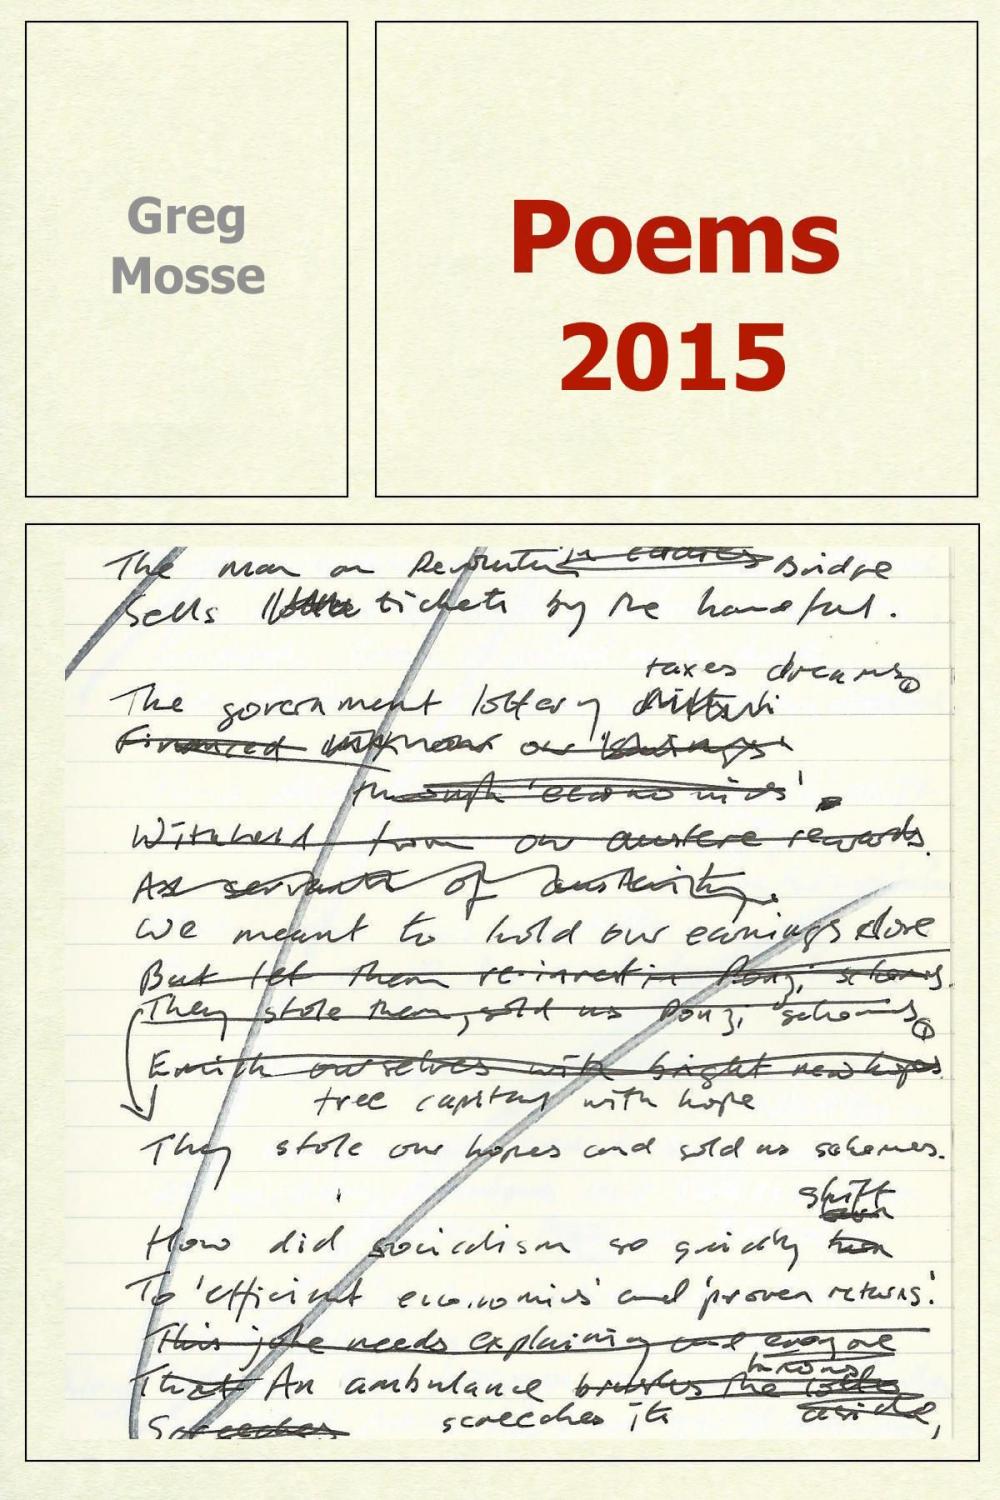 Greg
Mosse
Poems
2015
The man on Revolution Bridge
Sells tickets by the handful.
taxes dreams
The government lottery
Financed our savings
through 'economics'
Withheld from our austere rewards.
As servants of austerity.
We meant to hold our earnings close
But let them re-invest in Ponzi schemes.
They stole them, sold us Ponzi schemes
Enrich ourselves with bright new hopes
free capital with hope
They stole our hopes and sold us schemes.
shift
How did socialism so quickly turn
To 'efficient economics' and 'proven returns'.
This joke needs explaining and everyone
That An ambulance brushes the
screeches its aside,
Screeches